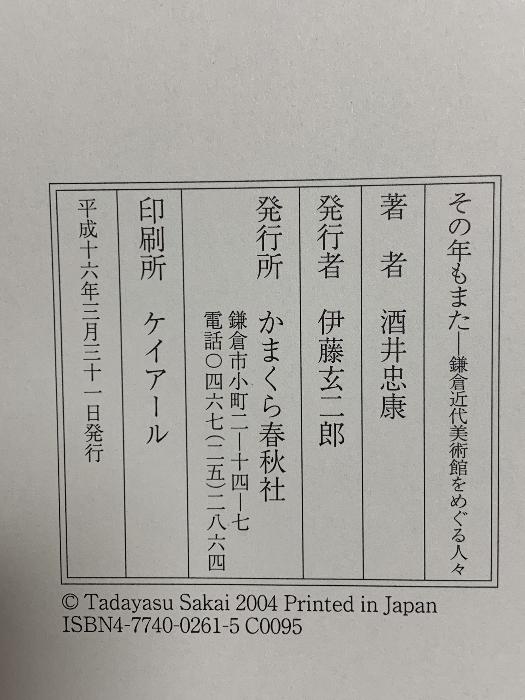 その年もまた―鎌倉近代美術館をめぐる人々
著者 酒井忠康
発行者 伊藤玄二郎
発行所 かまくら春秋社
鎌倉市小町二―十四―七
電話〇四六七(二五)二八六四
印刷所 ケイアール
平成十六年三月三十一日発行
© Tadayasu Sakai 2004 Printed in Japan
ISBN4-7740-0261-5 C0095